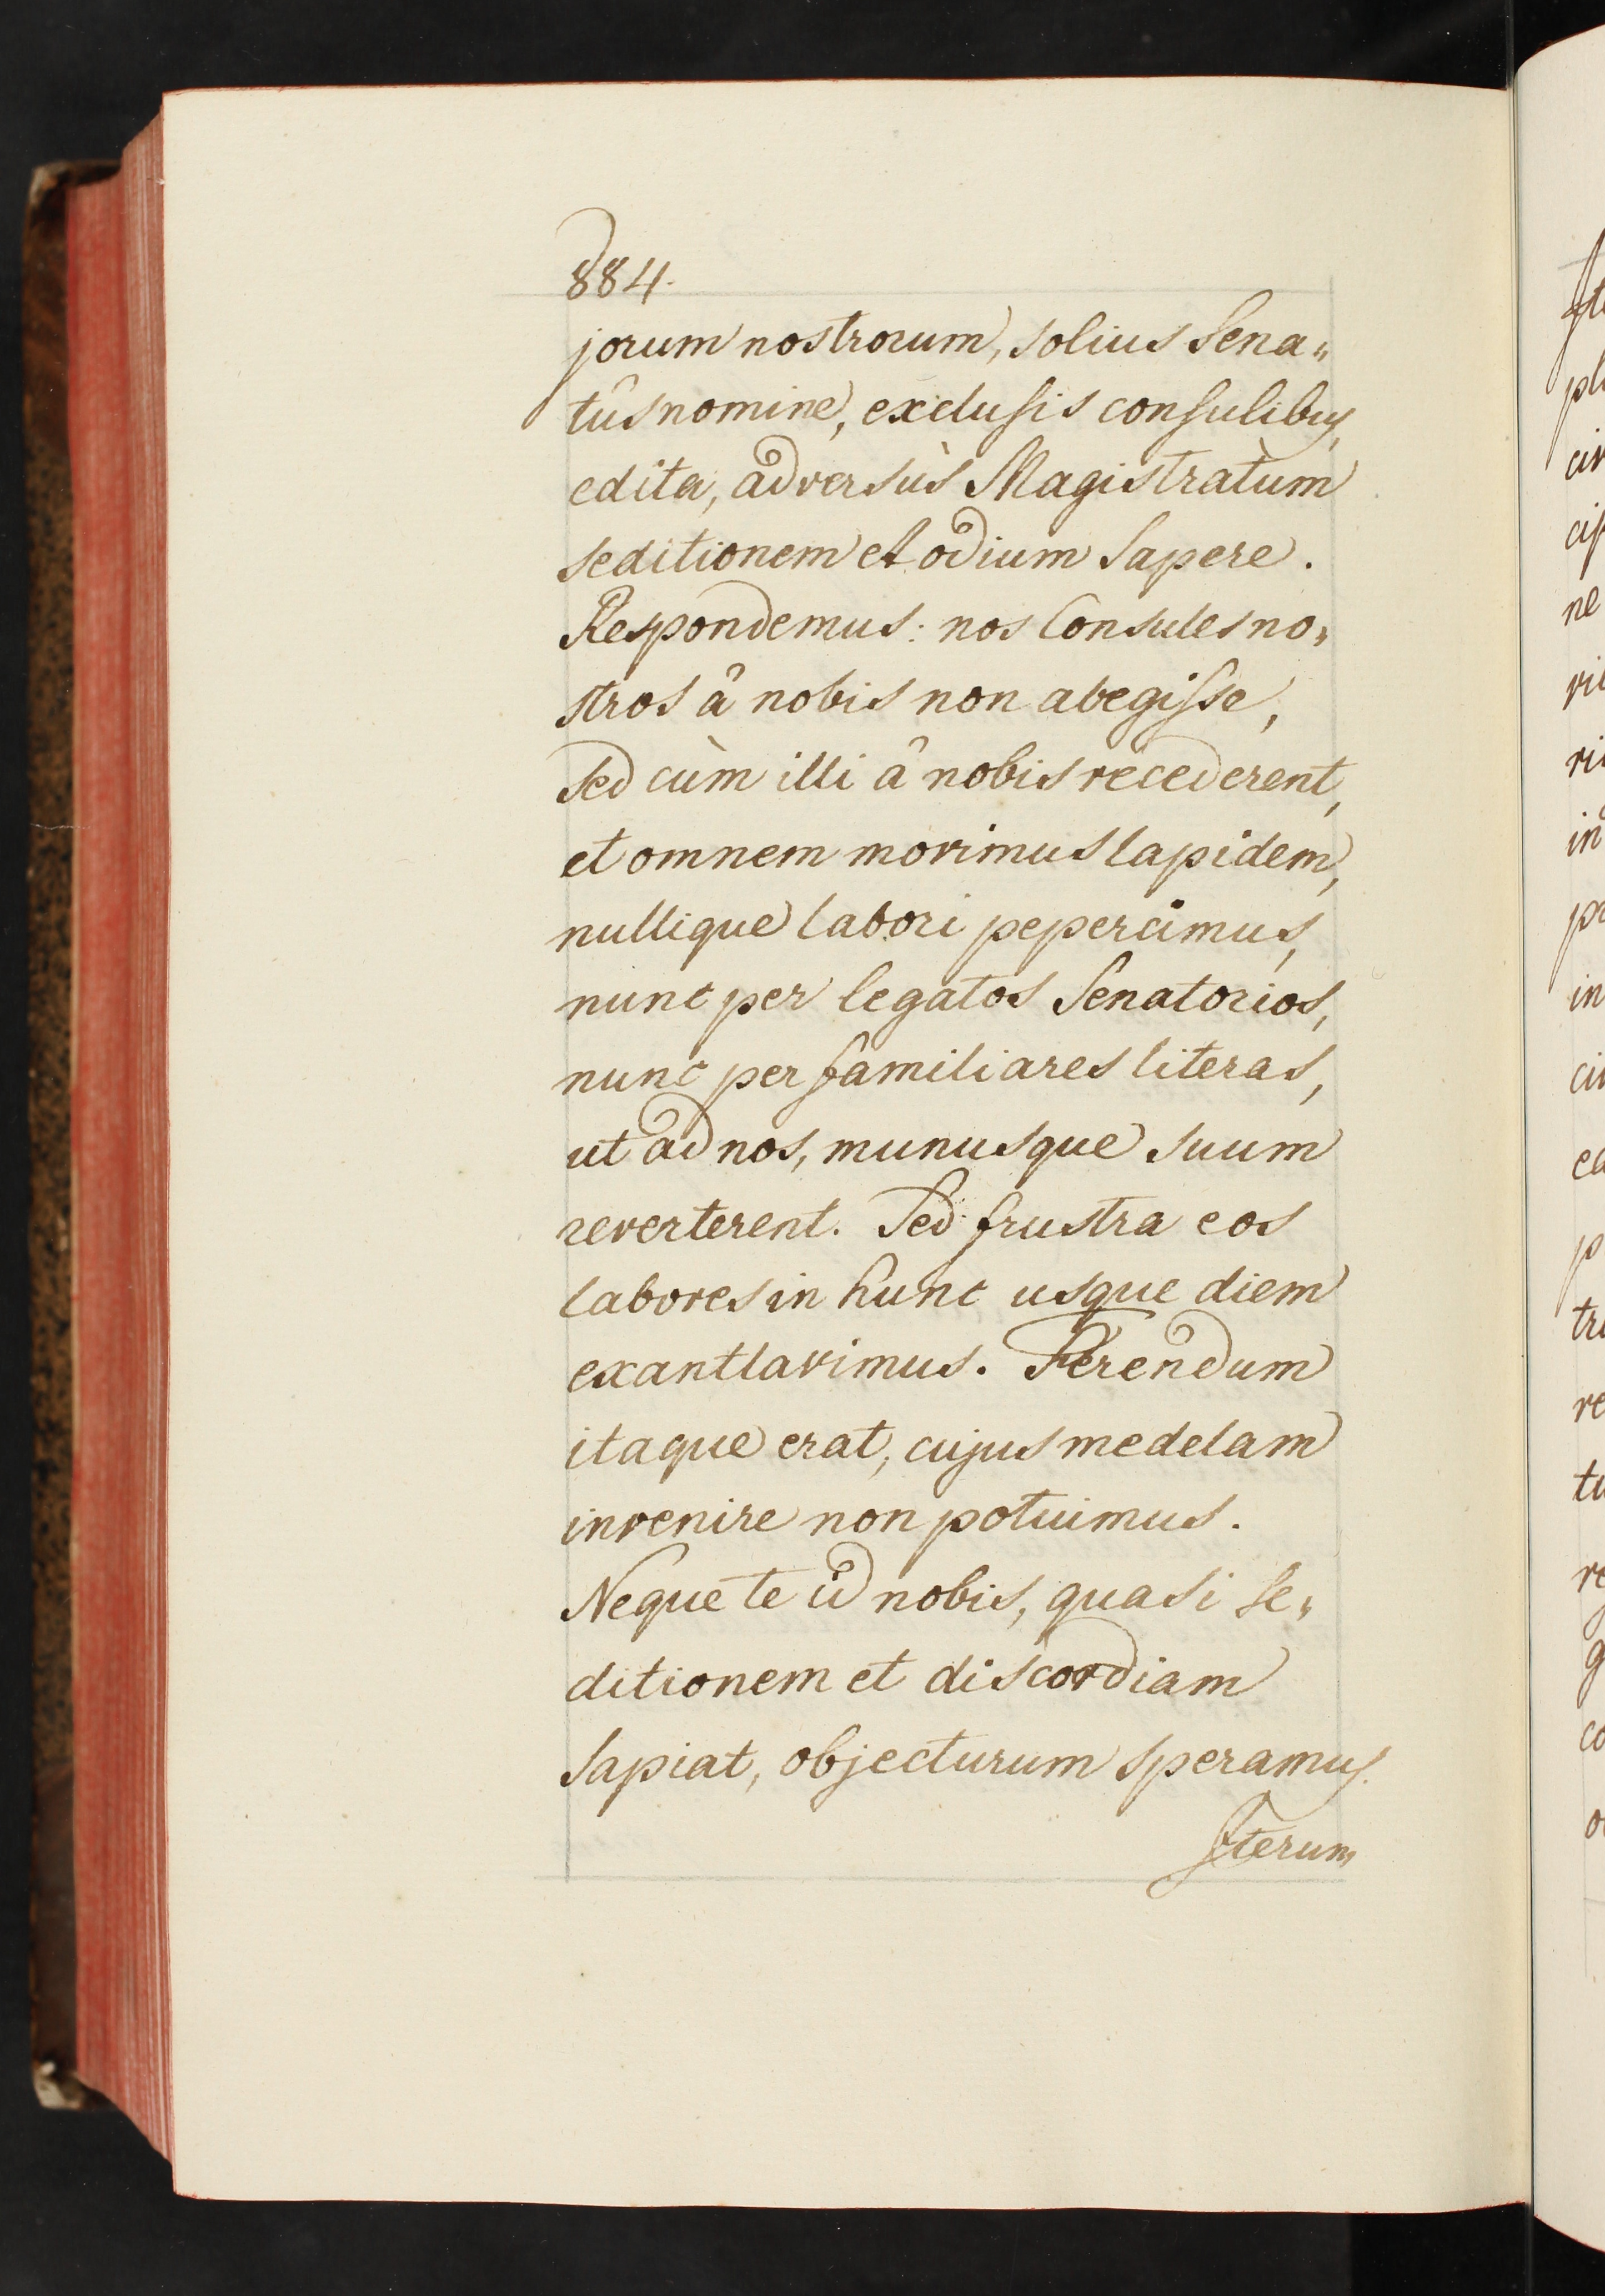 884.
jorum nostrorum, solius Sena„
tûs nomine, exclusis consulibus,
edita, adversùs Magistratùm
seditionem et odium sapere.
Respondemus: nos Consules no„
stros â nobis non abegisse,
sed cùm illi â nobis recederent,
et omnem movimus lapidem,
nullique labori pepercimus,
nunc per legatos Senatorios,
nunc per familiares literas,
ut ad nos, munusque suum
reverterent. Sed frustra eos
labores in hunc usque diem
exantlavimus. Ferendum
itaque erat, cujus medelam
invenire non potuimus.
Neque te id nobis, quasi se„
ditionem et discordiam
sapiat, objecturum speramus.
Iterum